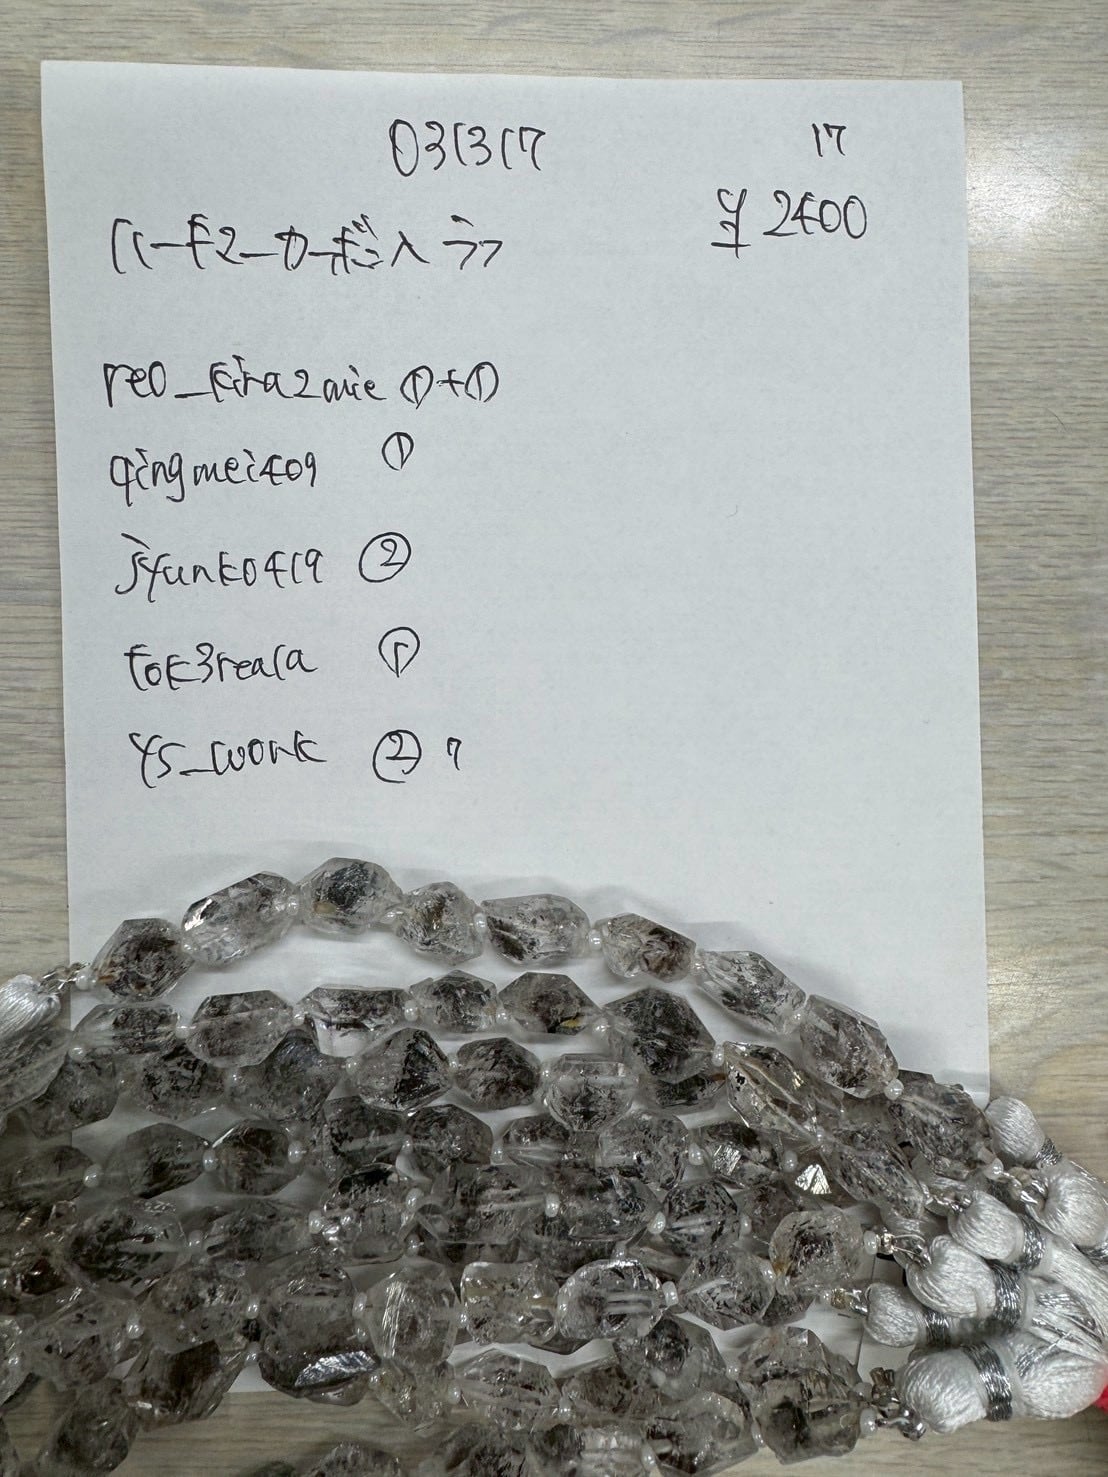 031317
17
ハーキマーカーボンイン ラフ
¥2400
reo_kira2mie ①+①
qingmei409 ①
jyunko419 ②
tok3reala ①
ys_work ② 7